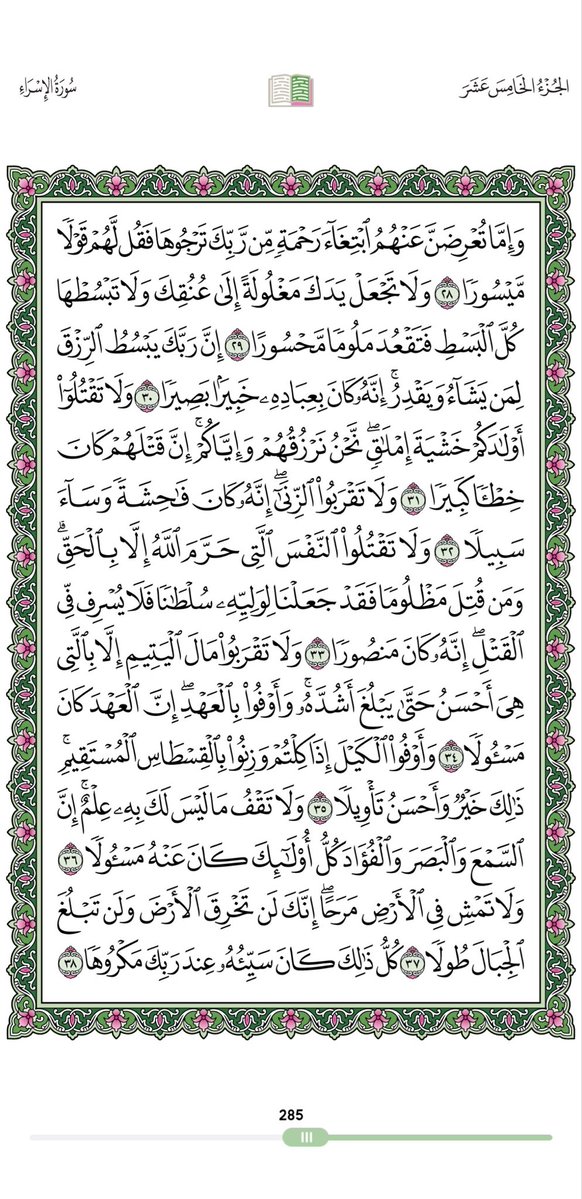 الجُزْءُ الخَامِسَ عَشَرَ
سُورَةُ الإِسْرَاءِ
وَإِمَّا تُعْرِضَنَّ عَنْهُمُ ٱبْتِغَآءَ رَحْمَةٖ مِّن رَّبِّكَ تَرْجُوهَا فَقُل لَّهُمْ قَوْلٗا
مَّيْسُورٗا ٢٨ وَلَا تَجْعَلْ يَدَكَ مَغْلُولَةً إِلَىٰ عُنُقِكَ وَلَا تَبْسُطْهَا
كُلَّ ٱلْبَسْطِ فَتَقْعُدَ مَلُومٗا مَّحْسُورًا ٢٩ إِنَّ رَبَّكَ يَبْسُطُ ٱلرِّزْقَ
لِمَن يَشَآءُ وَيَقْدِرُۚ إِنَّهُۥ كَانَ بِعِبَادِهِۦ خَبِيرَۢا بَصِيرٗا ٣٠ وَلَا تَقْتُلُوٓاْ
أَوْلَٰدَكُمْ خَشْيَةَ إِمْلَٰقٖۖ نَّحْنُ نَرْزُقُهُمْ وَإِيَّاكُمْۚ إِنَّ قَتْلَهُمْ كَانَ
خِطْـٔٗا كَبِيرٗا ٣١ وَلَا تَقْرَبُواْ ٱلزِّنَىٰٓۖ إِنَّهُۥ كَانَ فَٰحِشَةٗ وَسَآءَ
سَبِيلٗا ٣٢ وَلَا تَقْتُلُواْ ٱلنَّفْسَ ٱلَّتِي حَرَّمَ ٱللَّهُ إِلَّا بِٱلْحَقِّۗ
وَمَن قُتِلَ مَظْلُومٗا فَقَدْ جَعَلْنَا لِوَلِيِّهِۦ سُلْطَٰنٗا فَلَا يُسْرِف فِّي
ٱلْقَتْلِۖ إِنَّهُۥ كَانَ مَنصُورٗا ٣٣ وَلَا تَقْرَبُواْ مَالَ ٱلْيَتِيمِ إِلَّا بِٱلَّتِي
هِيَ أَحْسَنُ حَتَّىٰ يَبْلُغَ أَشُدَّهُۥۚ وَأَوْفُواْ بِٱلْعَهْدِۖ إِنَّ ٱلْعَهْدَ كَانَ
مَسْـُٔولٗا ٣٤ وَأَوْفُواْ ٱلْكَيْلَ إِذَا كِلْتُمْ وَزِنُواْ بِٱلْقِسْطَاسِ ٱلْمُسْتَقِيمِۚ
ذَٰلِكَ خَيْرٞ وَأَحْسَنُ تَأْوِيلٗا ٣٥ وَلَا تَقْفُ مَا لَيْسَ لَكَ بِهِۦ عِلْمٌۚ إِنَّ
ٱلسَّمْعَ وَٱلْبَصَرَ وَٱلْفُؤَادَ كُلُّ أُوْلَٰٓئِكَ كَانَ عَنْهُ مَسْـُٔولٗا ٣٦
وَلَا تَمْشِ فِي ٱلْأَرْضِ مَرَحًاۖ إِنَّكَ لَن تَخْرِقَ ٱلْأَرْضَ وَلَن تَبْلُغَ
ٱلْجِبَالَ طُولٗا ٣٧ كُلُّ ذَٰلِكَ كَانَ سَيِّئُهُۥ عِندَ رَبِّكَ مَكْرُوهٗا ٣٨
285